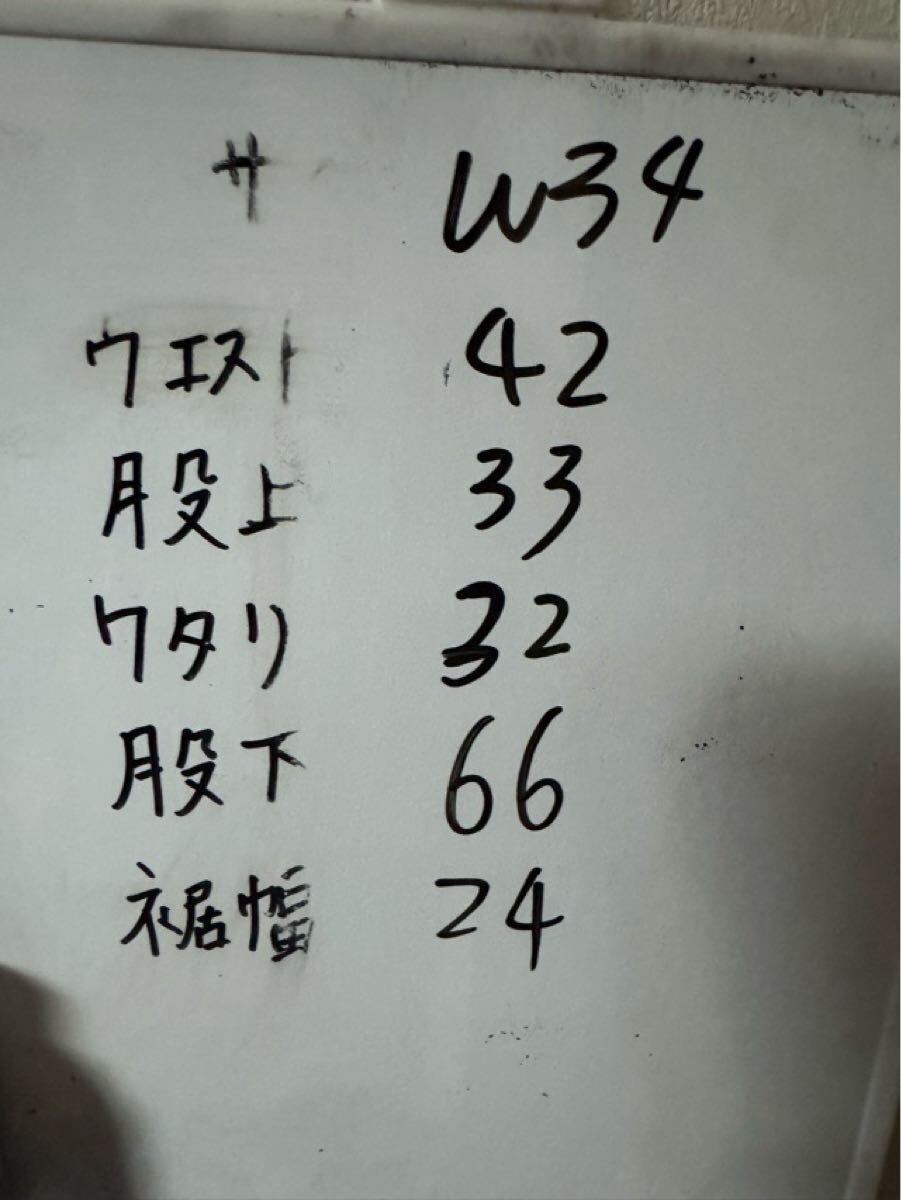 サ W34
ウエスト 42
股上 33
ワタリ 32
股下 66
裾幅 24